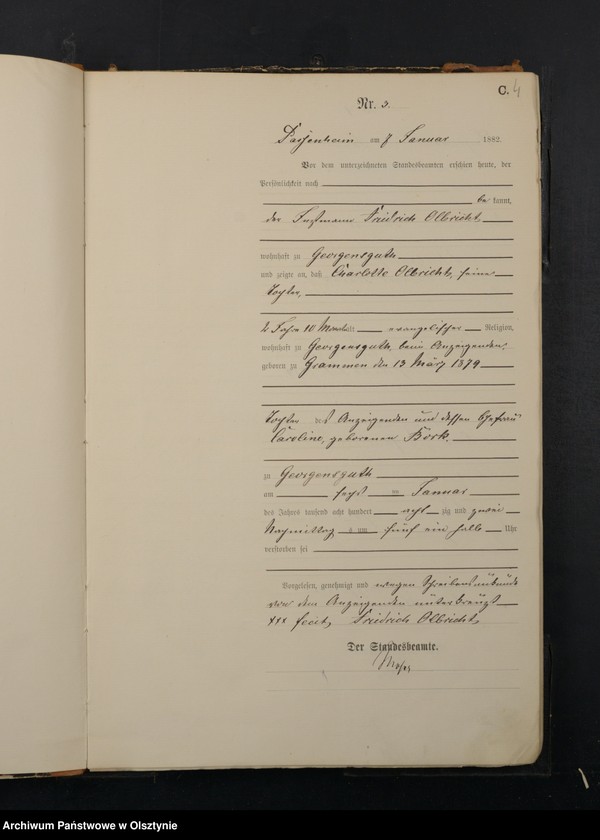 C. 4
Nr. 3.
Passenheim am 7 Januar 1882.
Vor dem unterzeichneten Standesbeamten erschien heute, der
Persönlichkeit nach
be kannt,
der Instmann Fridrich Olbricht,
wohnhaft zu Georgensguth
und zeigte an, daß Charlotte Olbricht, seine
Tochter,
2 Jahre 10 Monate evangelischer Religion,
wohnhaft zu Georgensguth, beim Anzeigenden,
geboren zu Grammen den 13 März 1879
Tochter des Anzeigenden und dessen Ehefrau
Caroline, geborenen Bork.
zu Georgensguth
am sechs ten Januar
des Jahres tausend acht hundert acht zig und zwei
Nachmittag s um fünf ein halb Uhr
verstorben sei
Vorgelesen, genehmigt und wegen Schreibensunkunde
von dem Anzeigenden unterkreuzt
xxx fecit, Fridrich Olbricht,
Der Standesbeamte.
Archiwum Państwowe w Olsztynie